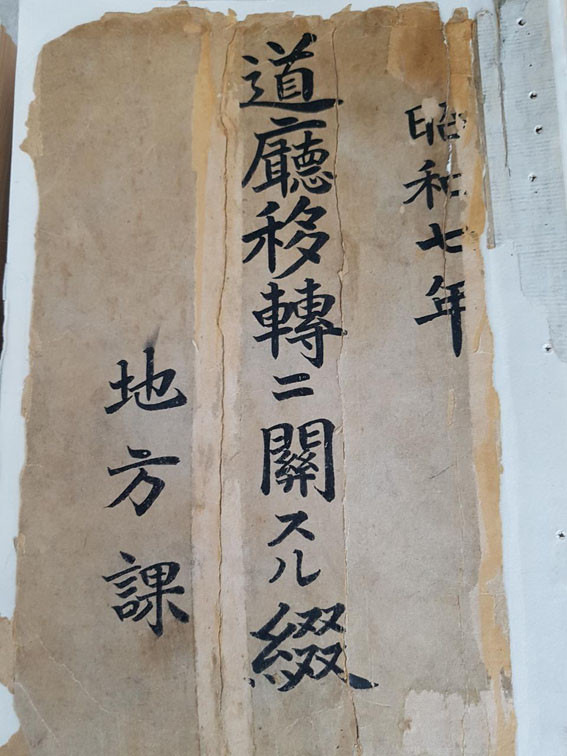 昭和七年
道廳移轉ニ關スル綴
地方課